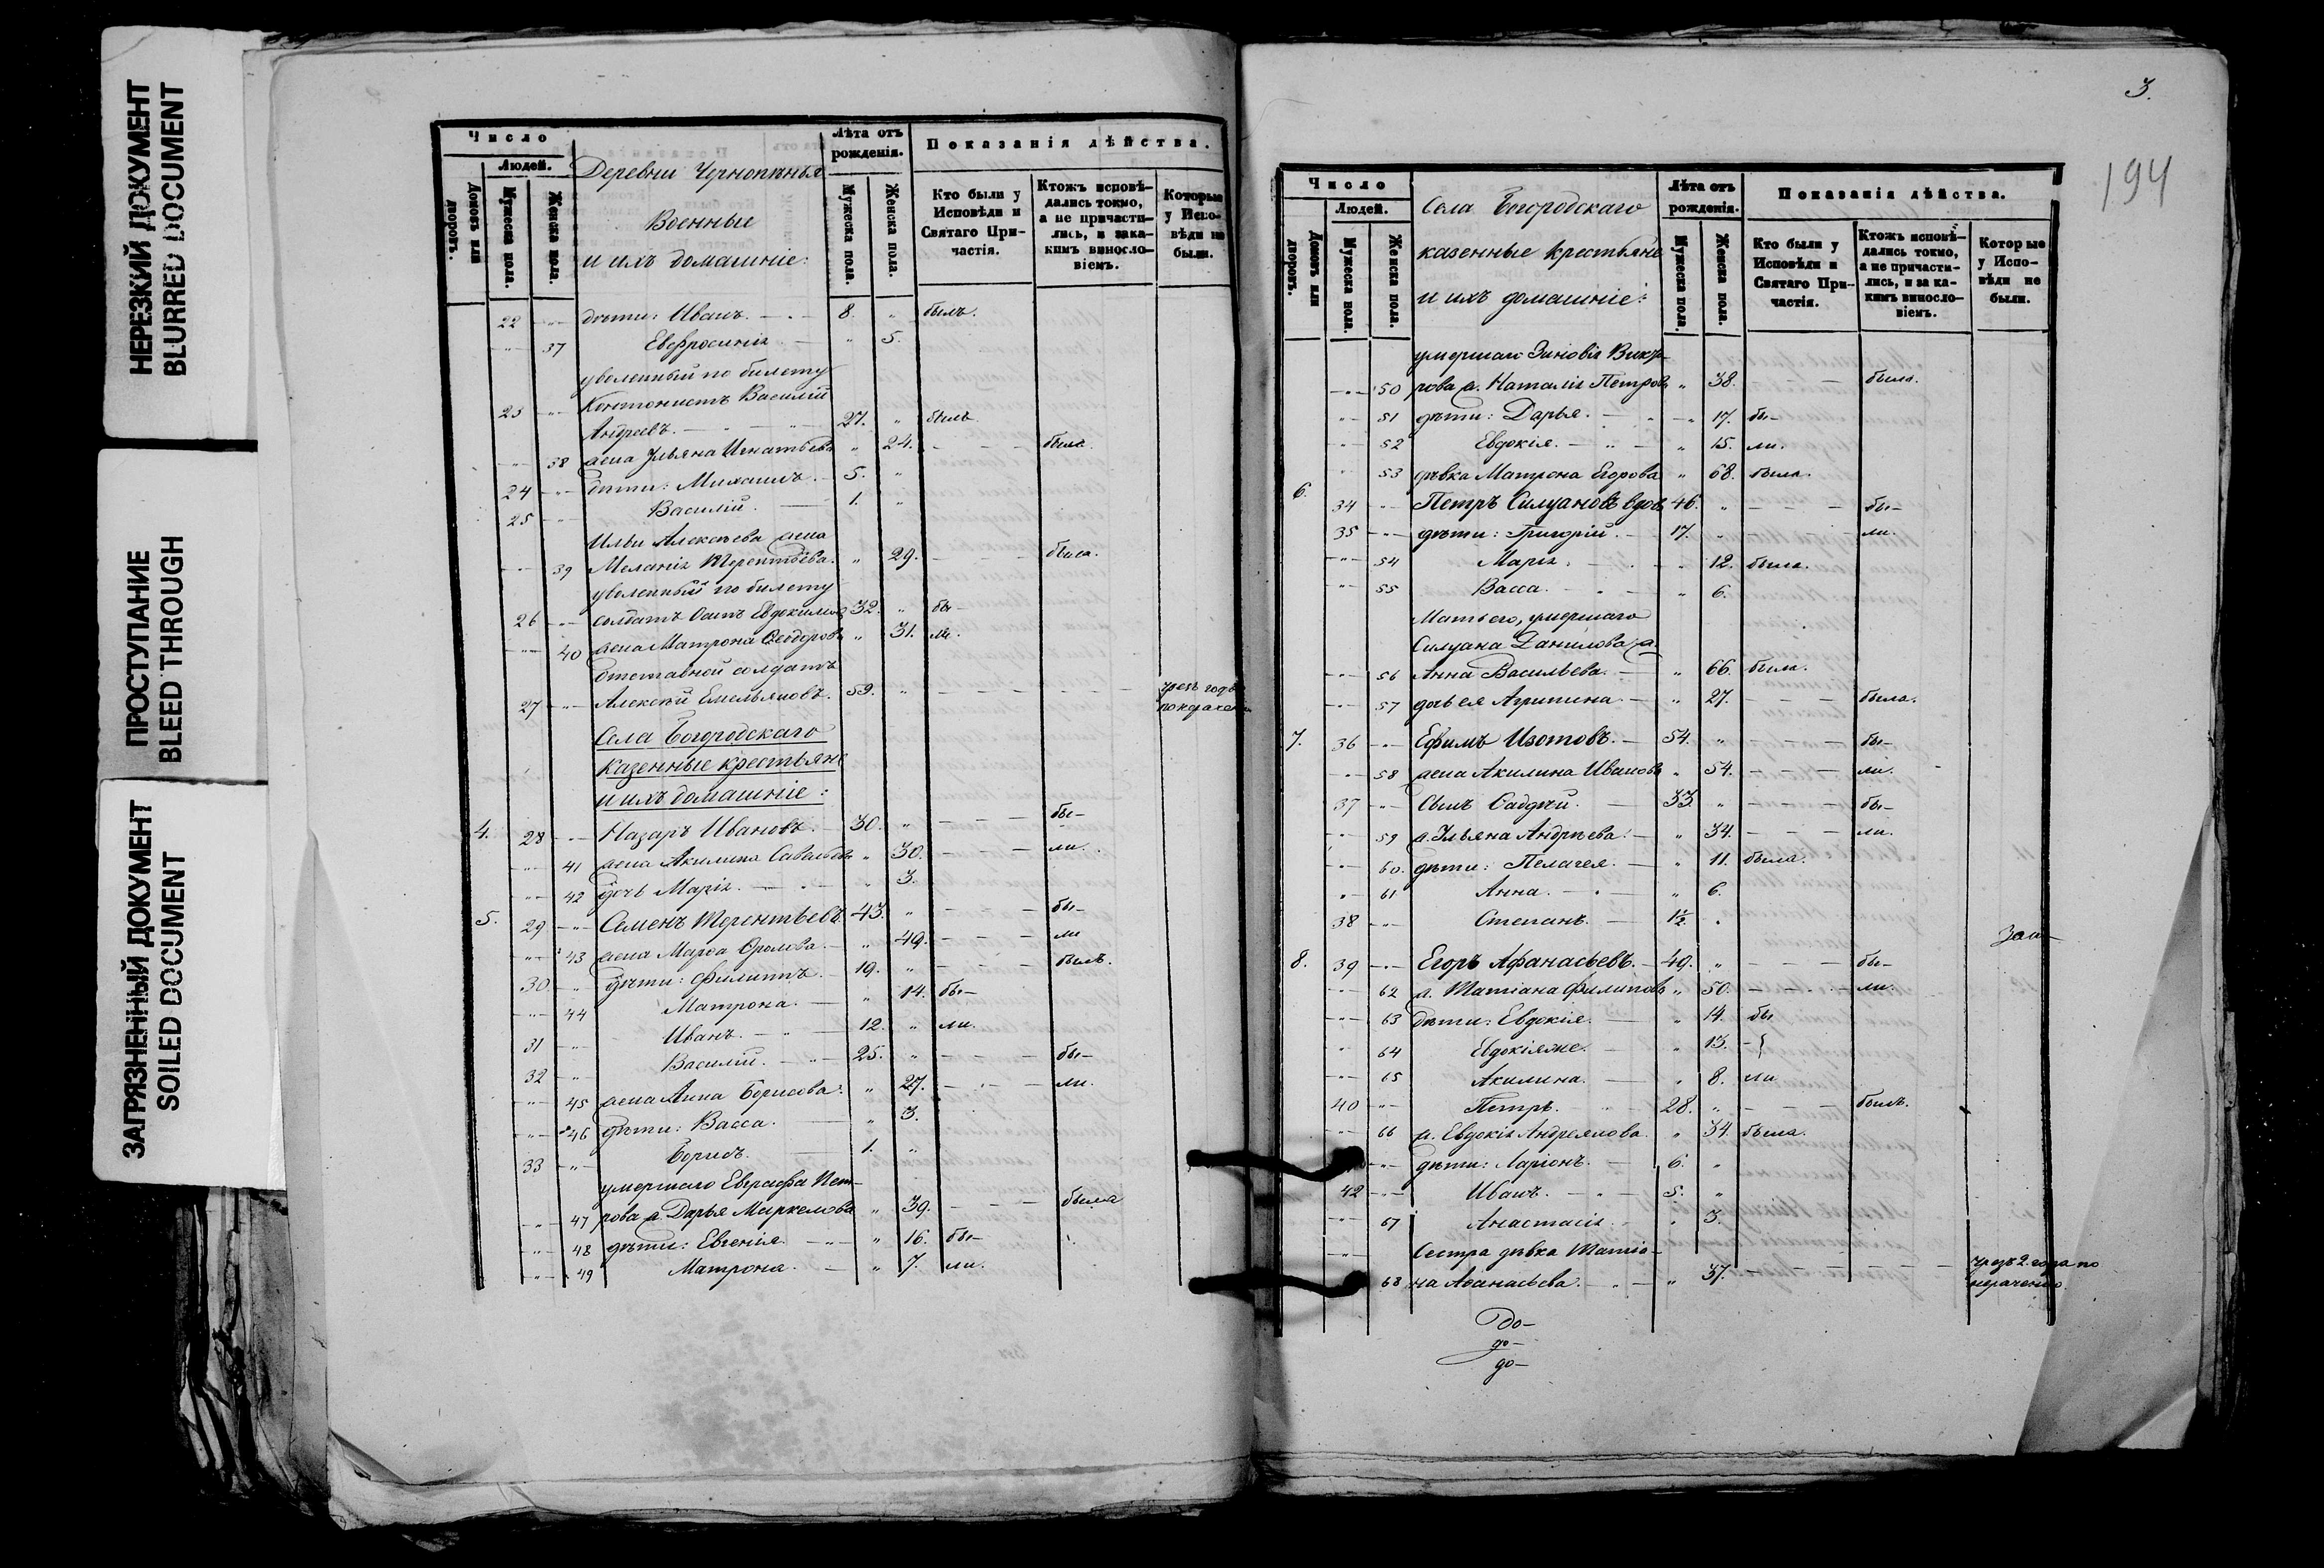 НЕРЕЗКИЙ ДОКУМЕНТ
BLURRED DOCUMENT
ПРОСТУПАНИЕ
BLEED THROUGH
ЗАГРЯЗНЕННЫЙ ДОКУМЕНТ
SOILED DOCUMENT
Число
Людей.
Домовъ или дворовъ.
Мужеска пола.
Женска пола.
Деревни
Военные
и ихъ домашніе:
Лѣта отъ рожденія.
Мужеска пола.
Женска пола.
Показанія дѣйства.
Кто были у Исповѣди и Святаго Причастія.
Ктожъ исповѣдались токмо, а не причастились, и за какимъ винословіемъ.
Которые у Исповѣди не были.
22 -"- дѣти: Иванъ. 8. " былъ.
-"- 37 Евфросинія " 5.
уволенный по билету
23 -"- Кантонистъ Василій
Андреевъ. 27. " былъ
-"- 38 жена Ульяна Игнатьева " 24. - - - была.
24 -"- дѣти: Михаилъ. 5. "
25 -"- Василій. 1. "
Ильи Алексѣева жена
-"- 39 Меланія Терентьева. " 29. - - - была.
уволенный по билету
26 -"- солдатъ Евдокимовъ 32. " бы-
-"- 40 жена Матрона Ѳеодорова " 31. ли.
отставной солдатъ
27 -"- Алексѣй Емельяновъ. 59. " - - - - - -
Села Богородскаго
казенные крестьяне
и ихъ домашніе:
4. 28 -"- Назаръ Ивановъ. 30. " - - - бы-
-"- 41 жена Акилина Савельева " 30. - - - ли.
-"- 42 дочь Марія. " 3.
5. 29 -"- Семенъ Терентьевъ 43. " - - - бы-
-"- 43 жена Марѳа Фролова. " 49. - - - ли
30. -"- дѣти: Филиппъ. 19. " - - - былъ.
-"- 44 Матрона. " 14. бы-
31 -"- Иванъ. 12. " ли.
32 -"- Василій. 25. " - - - бы-
-"- 45 жена Анна Борисова. " 27. - - - ли.
-"- 46 дѣти: Васса. " 3.
33 -"- Борисъ. 1. "
умершаго Евграфа Пет-
-"- 47 рова ж. Дарья Маркелова " 39. - - - была
-"- 48 дѣти: Евгенія. " 16. бы-
-"- 49 Матрона. " 7. ли.
3.
194
Число
Людей.
Домовъ или дворовъ.
Мужеска пола.
Женска пола.
Села Богородскаго
казенные крестьяне
и ихъ домашніе:
Лѣта отъ рожденія.
Мужеска пола.
Женска пола.
Показанія дѣйства.
Кто были у Исповѣди и Святаго Причастія.
Ктожъ исповѣдались токмо, а не причастились, и за какимъ винословіемъ.
Которые у Исповѣди не были.
умершаго Зиновія
-"- 50 рова ж. Наталія Петрова " 38. - - - была.
-"- 51 дѣти: Дарья. " 17. бы-
-"- 52 Евдокія. " 15. ли.
-"- 53 дѣвка Матрона Егорова " 68. была.
6. 34 -"- Петръ Силуановъ вдов. 46. " - - - бы-
35 -"- дѣти: Григорій. 17. " ли.
-"- 54 Марія. " 12. была.
-"- 55 Васса. " 6.
Мать его, умершаго
Силуана Данилова ж.
-"- 56 Анна Васильева. " 66. была.
-"- 57 дочь ея Агрипина. " 27. - - - была.
7. 36 -"- Ефимъ Изотовъ. 54. " - - - бы-
-"- 58 жена Акилина Иванова " 54. - - - ли.
37 -"- Сынъ Фаддѣй. 33 " - - - бы-
-"- 59 ж. Ульяна Андрѣева. " 34. - - - ли.
-"- 60. дѣти: Пелагея. " 11. была.
-"- 61 Анна. " 6.
38 -"- Степанъ. 1½. "
8. 39 -"- Егоръ Афанасьевъ. 49. " - - - бы-
-"- 62 ж. Татіана Филипова " 50. - - - ли.
-"- 63 дѣти: Евдокія. " 14. бы
-"- 64 Евдокія же. " 13. -
-"- 65 Акилина. " 8. ли
40 -"- Петръ. 28. " - - - былъ.
-"- 66 ж. Евдокія Андреянова. " 34. была.
-"- дѣти: Ларіонъ. 6. "
42 -"- Иванъ. 5. "
-"- 67 Анастасія. " 3.
Сестра дѣвка Татіа-
-"- 68 на Аѳанасьева. " 37. - - - - - - чрезъ 2 года по
нераченію.
до-
го-
до-